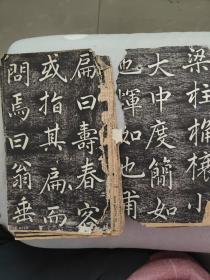 梁柱桷榱小
大中度簡如
也煇如也甫
扁曰壽春容
或指其扁而
問焉曰翁垂